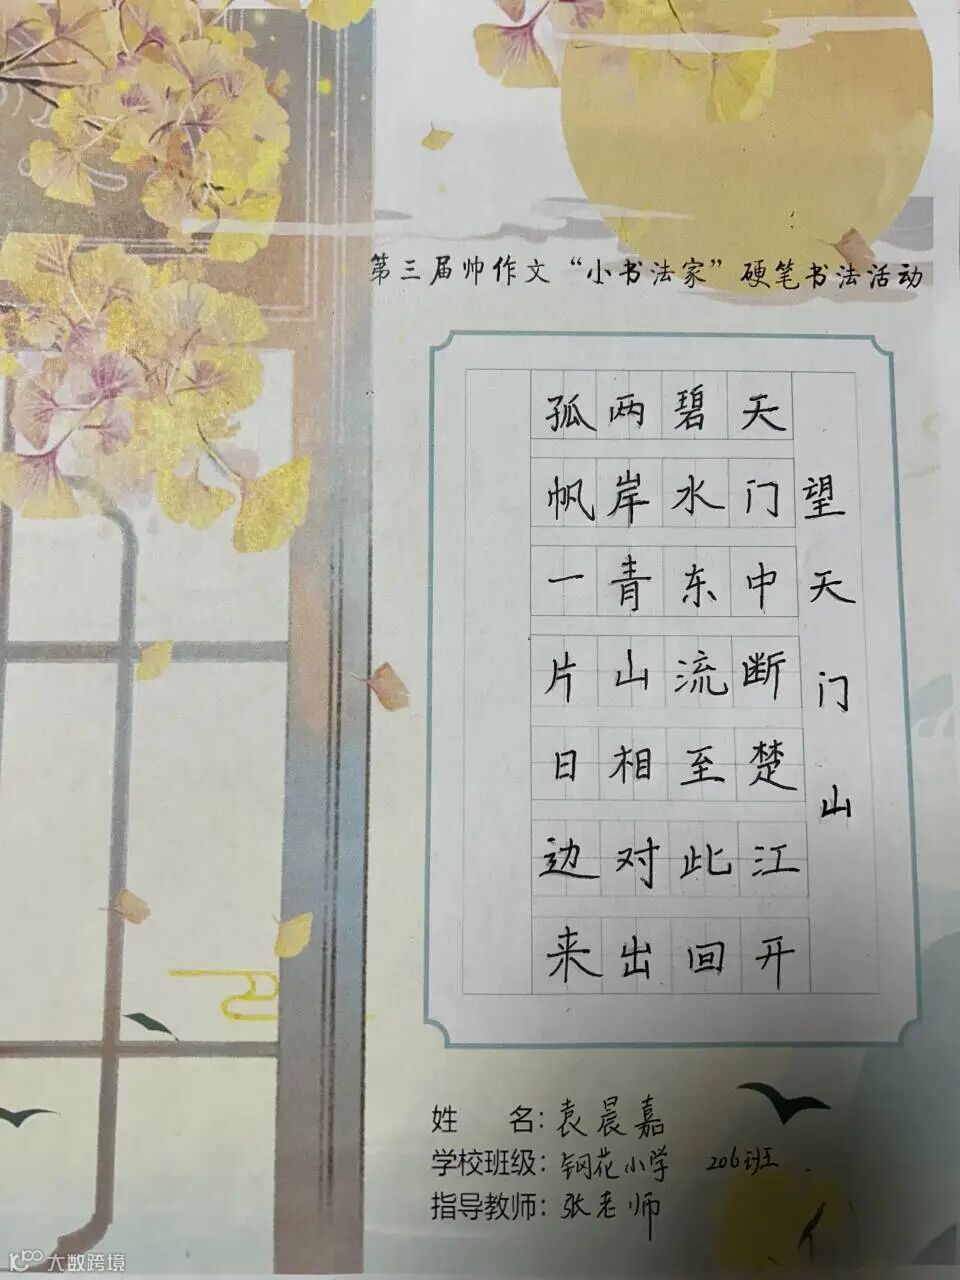 第三届帅作文“小书法家”硬笔书法活动
望天门山
天门中断楚江开
碧水东流至此回
两岸青山相对出
孤帆一片日边来
姓 名：袁晨嘉
学校班级：钢花小学 206班
指导教师：张老师
大数跨境